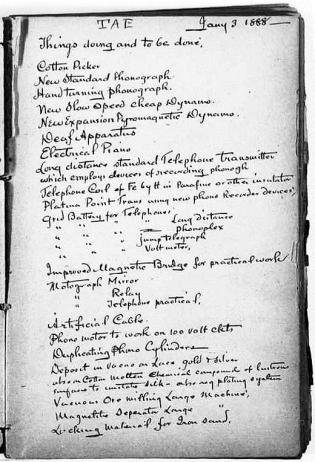 TAE Jany 3 1888
Things doing and to be done,
Cotton Picker
New Standard Phonograph
Hand turning phonograph.
New Slow Speed Cheap Dynamo.
New Expansion Pyromagnetic Dynamo.
Deaf Apparatus
Electrical Piano
Long distance standard Telephone transmitter
which employs devices of recording phonogh
Telephone Coil of Fe by tt in Parafine or other insulator
Platina Point Trans using new phono Recorder devices,
Grd Battery for Telephones,
" " " Long distance
" " " Phonoplex
" " " jump telegraph
" " " Voltmeter,
Improved Magnetic Bridge for practical work
Motograph Mirror
" Relay
" Telephone practical,
Artificial Cable
Phono motor to work on 100 volt ckts
Duplicating Phono Cylinders
Deposit in vacuo on lace gold & silver
also on Cotton molten Chemical compound of lustrous
surface to imitate silk - also reg plating system
Vacuous Ore milling Large Machine,
Magnetite Seperator Large
Locking Material for Iron sand,